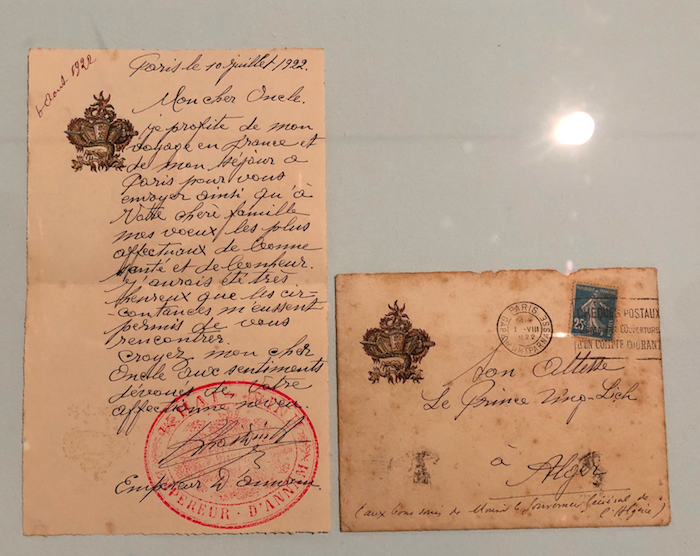 6 Août 1922
Paris le 10 juillet 1922.
Mon cher Oncle.
je profite de mon
voyage en france et
de mon séjour a
Paris pour vous
envoyer ainsi qu'à
Votre chère famille
mes voeux les plus
affectueux de bonne
santé et de bonheur.
j'aurais été très
heureux que les cir-
constances m'eussent
permis de vous
rencontrer.
Croyez, mon cher
Oncle aux sentiments
dévoués de votre
affectionné neveu.
Empereur d'Annam
EMPEREUR · D'ANNAM
PARIS
GARE MONTPARNASSE
1 - VIII
25c
CHEQUES POSTAUX
D'UN COMPTE COURANT
Son Altesse
Le Prince Ung-Lich
à
Alger
(aux bons soins de Monsr le Gouverneur Général de
l'Algérie)